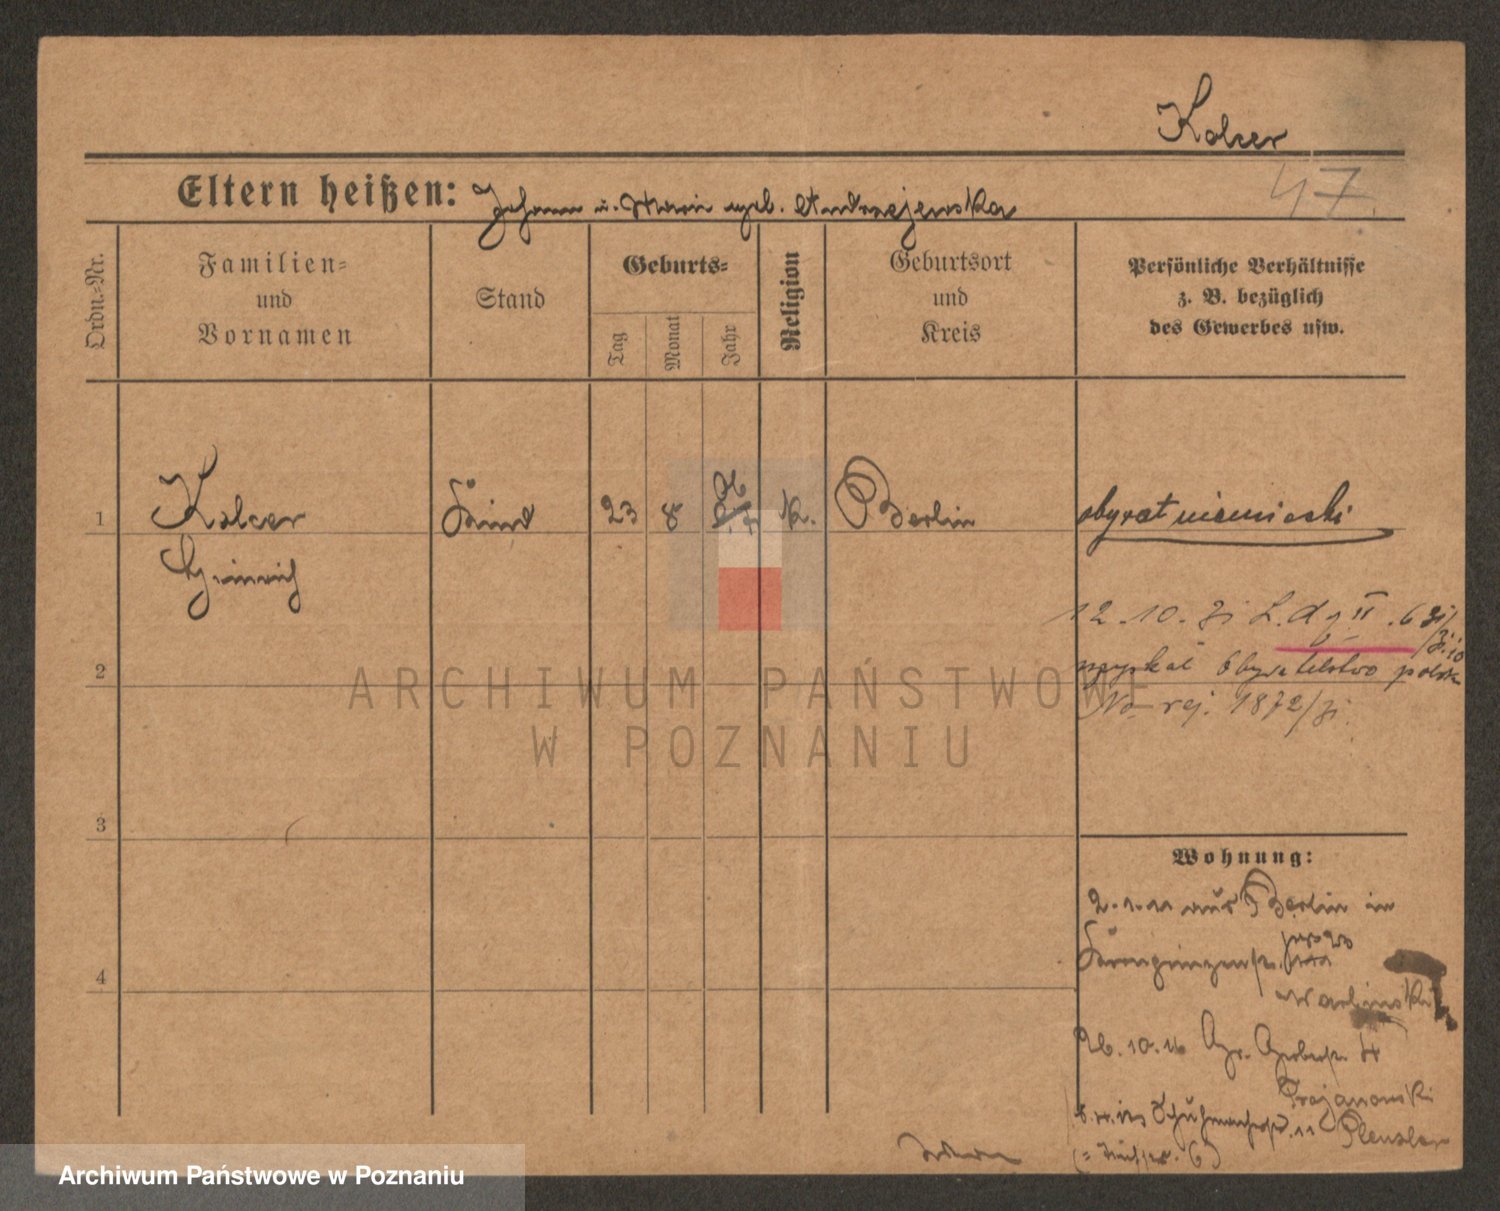 Kolcer
47.
Eltern heißen: Johann u. Marie geb. Andrzejewska
Ordn.-Nr.
Familien-
und
Vornamen
Stand
Geburts-
Tag
Monat
Jahr
Religion
Geburtsort
und
Kreis
Persönliche Verhältnisse
z. B. bezüglich
des Gewerbes usw.
1
Kolcer
Heinrich
Kind
23
8
k.
Berlin
obywat niemiecki
12.10.
uzyskał obywatelstwo polsk
No. rej. 1872/
2
3
4
Wohnung:
2.1.11 aus Berlin in
Kronprinzenstr.
26.10.16 Gr. Gerberstr.
Trojanowski
Schuhmacherstr. 11
ARCHIWUM PAŃSTWOWE
W POZNANIU
Archiwum Państwowe w Poznaniu